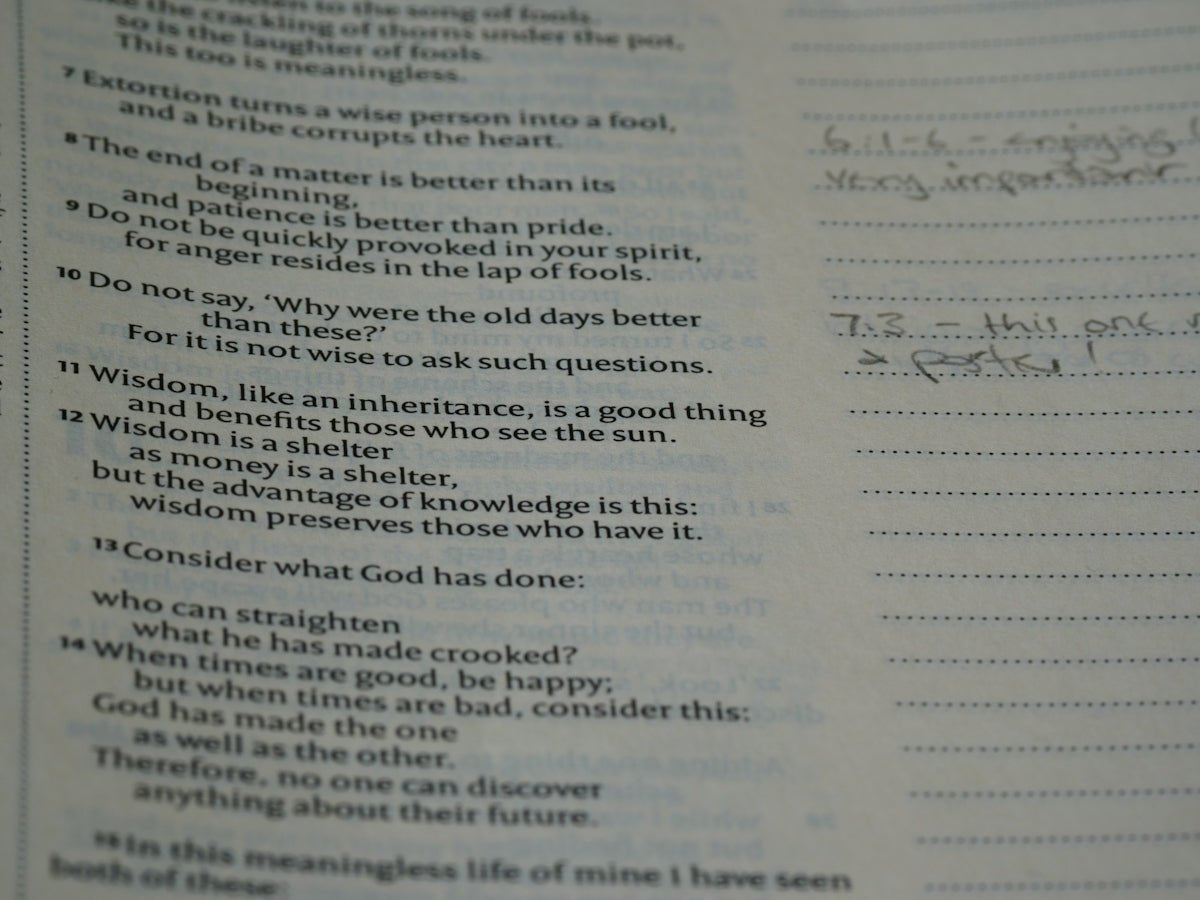 to the song of fools.
the crackling of thorns under the pot,
so is the laughter of fools.
This too is meaningless.
7 Extortion turns a wise person into a fool,
and a bribe corrupts the heart.
8 The end of a matter is better than its
beginning,
and patience is better than pride.
9 Do not be quickly provoked in your spirit,
for anger resides in the lap of fools.
10 Do not say, ‘Why were the old days better
than these?’
For it is not wise to ask such questions.
11 Wisdom, like an inheritance, is a good thing
and benefits those who see the sun.
12 Wisdom is a shelter
as money is a shelter,
but the advantage of knowledge is this:
wisdom preserves those who have it.
13 Consider what God has done:
who can straighten
what he has made crooked?
14 When times are good, be happy;
but when times are bad, consider this:
God has made the one
as well as the other.
Therefore, no one can discover
anything about their future.
15 In this meaningless life of mine I have seen
both of these:
6:1-6 - enjoying
very important
7:3 - this one